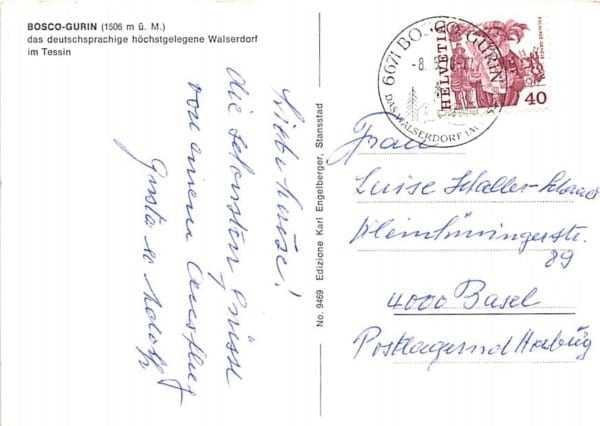 BOSCO-GURIN (1506 m ü. M.)
das deutschsprachige höchstgelegene Walserdorf
im Tessin
Liebe Luise!
die schönsten Grüsse
von einem Ausflug
Gusta u Adolf
No. 9469 Edizione Karl Engelberger, Stansstad
6671 BOSCO GURIN
-8.
DAS WALSERDORF IM
HELVETIA
ESCALADE GENÈVE
40
Frau
Luise Schaller-
Kleinhüningerstr.
89
4000 Basel
Postlagernd